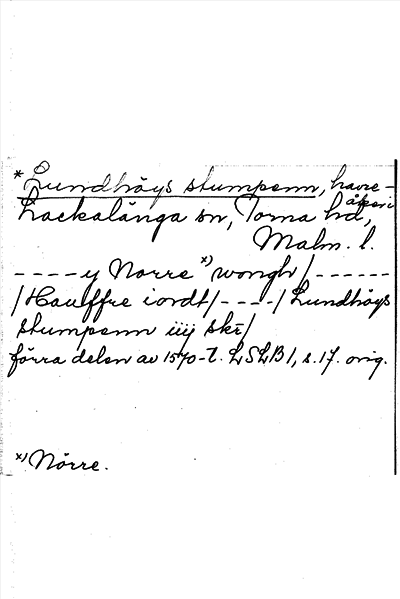 * Lundhöys stumpenn, havre-
åker i
Lackalänga sn, Torna hd,
Malm. l.
----y Norre x) wongh/------
/Hauffre iordt/----/Lundhöys
stumpenn iiij skr/
förra delen av 1570-t. LSLB1, s.17. orig.
x) Nörre.